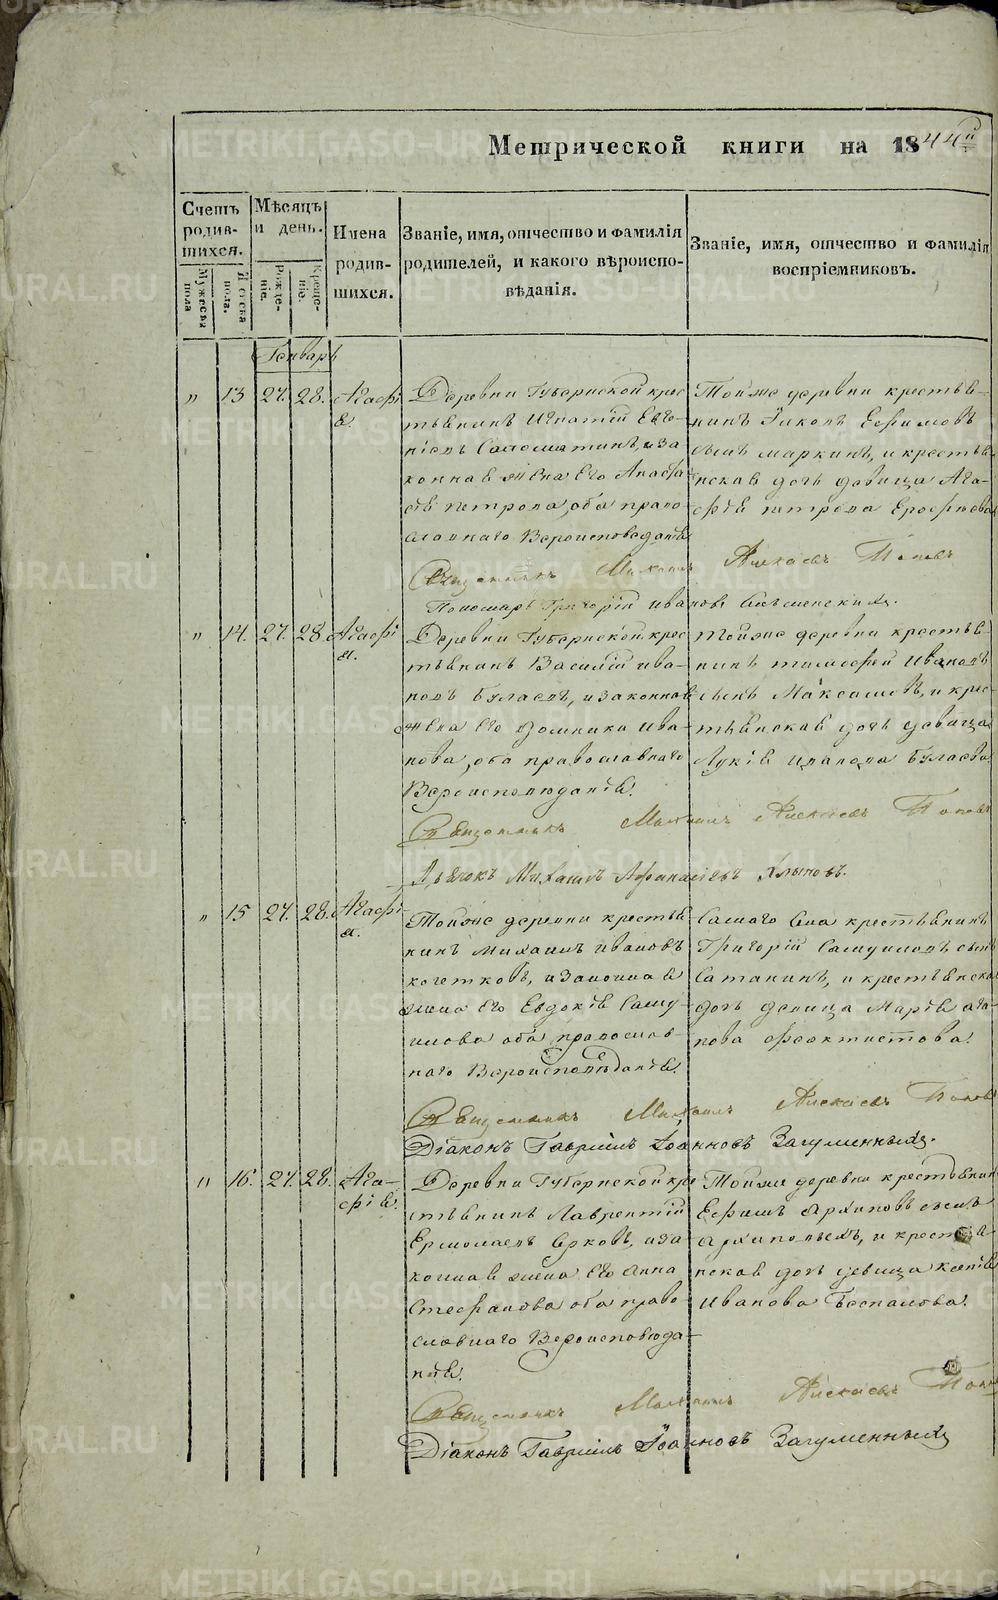 Метрической книги на 1844й
Счетъ родившихся.
Мѣсяцъ и день.
Имена родившихся.
Званіе, имя, отчество и фамилія родителей, и какого вѣроисповѣданія.
Званіе, имя, отчество и фамилія воспріемниковъ.
Мужеска пола
Женска пола.
Рожденіе.
Крещеніе.
Генварь
" 13 27. 28. Агафія
Деревни Губернской крес
тьянинъ Игнатій Евге-
ніевъ Саломатинъ, и за
конная жена его Анаста
сія Петрова, оба право-
славнаго Вероисповеданія
Тойже деревни крестья-
нинъ Ефимовъ
сынъ Маркинъ, и крестья
нская дочь девица Ага-
фія Петрова Ерофѣева
Священникъ Михаилъ Алексѣевъ Поповъ
Пономарь Григорій Ивановъ
" 14. 27. 28 Агафія.
Деревни Губернской крес
тьянинъ Василій Ива-
новъ Булаевъ, и законная
жена его Домника Ива-
нова, оба православнаго
Вероисповѣданія.
Тойже деревни крестья-
нинъ Тимофей Ивановъ
сынъ Максимовъ, и крес-
тьянская дочь девица
Лукія Иванова Булаева
Священникъ Михаилъ Алексѣевъ Поповъ
Дьячокъ Михаилъ Афанасіевъ Хлыновъ.
" 15 27. 28. Агафія.
Тойже деревни крестья
нинъ Михаилъ Ивановъ
Кочетковъ, и законная
жена его Евдокія Саму
илова оба православ-
наго Вероисповѣданія.
Самаго Села крестьянинъ
Григорій Самуиловъ сынъ
Сатанинъ, и крестьянска
дочь девица Марія Ага-
пова Феоктистова.
Священникъ Михаилъ Алексѣевъ Поповъ
Діаконъ Гавріилъ Іоанновъ Загуменныхъ.
" 16. 27. 28. Ага-
фія.
Деревни Губернской кре
стьянинъ Лаврентій
Ермолаевъ Серковъ, и за
конная жена его Анна
Стефанова оба право
славнаго Вероисповѣда-
нія.
Тойже деревни крестьянин
Ефимъ Архиповъ сынъ
Архиповыхъ, и крестья
нская дочь девица Ксенія
Иванова Беспалова.
Священникъ Михаилъ Алексѣевъ Попов
Діаконъ Гавріилъ Іоанновъ Загуменныхъ
METRIKI.GASO-URAL.RU